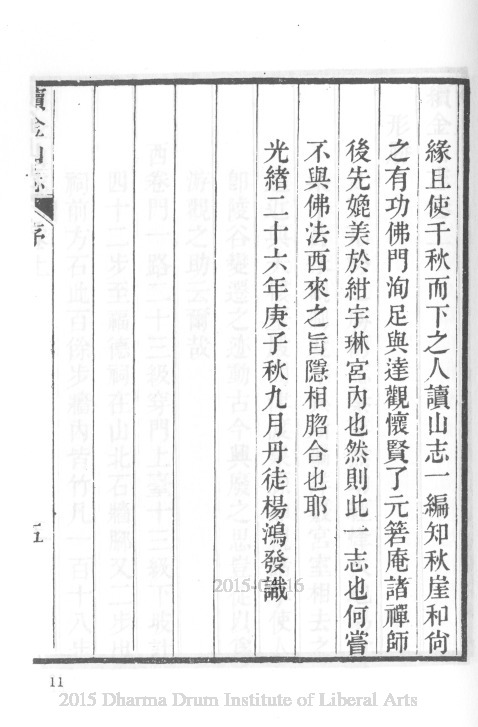 緣且使千秋而下之人讀山志一編知秋崖和尙
之有功佛門洵足與達觀懷賢了元箬庵諸禪師
後先媲美於紺宇琳宮內也然則此一志也何嘗
不與佛法西來之旨隱相脗合也耶
光緖二十六年庚子秋九月丹徒楊鴻發識
續金山志
序
五
11
2015 Dharma Drum Institute of Liberal Arts